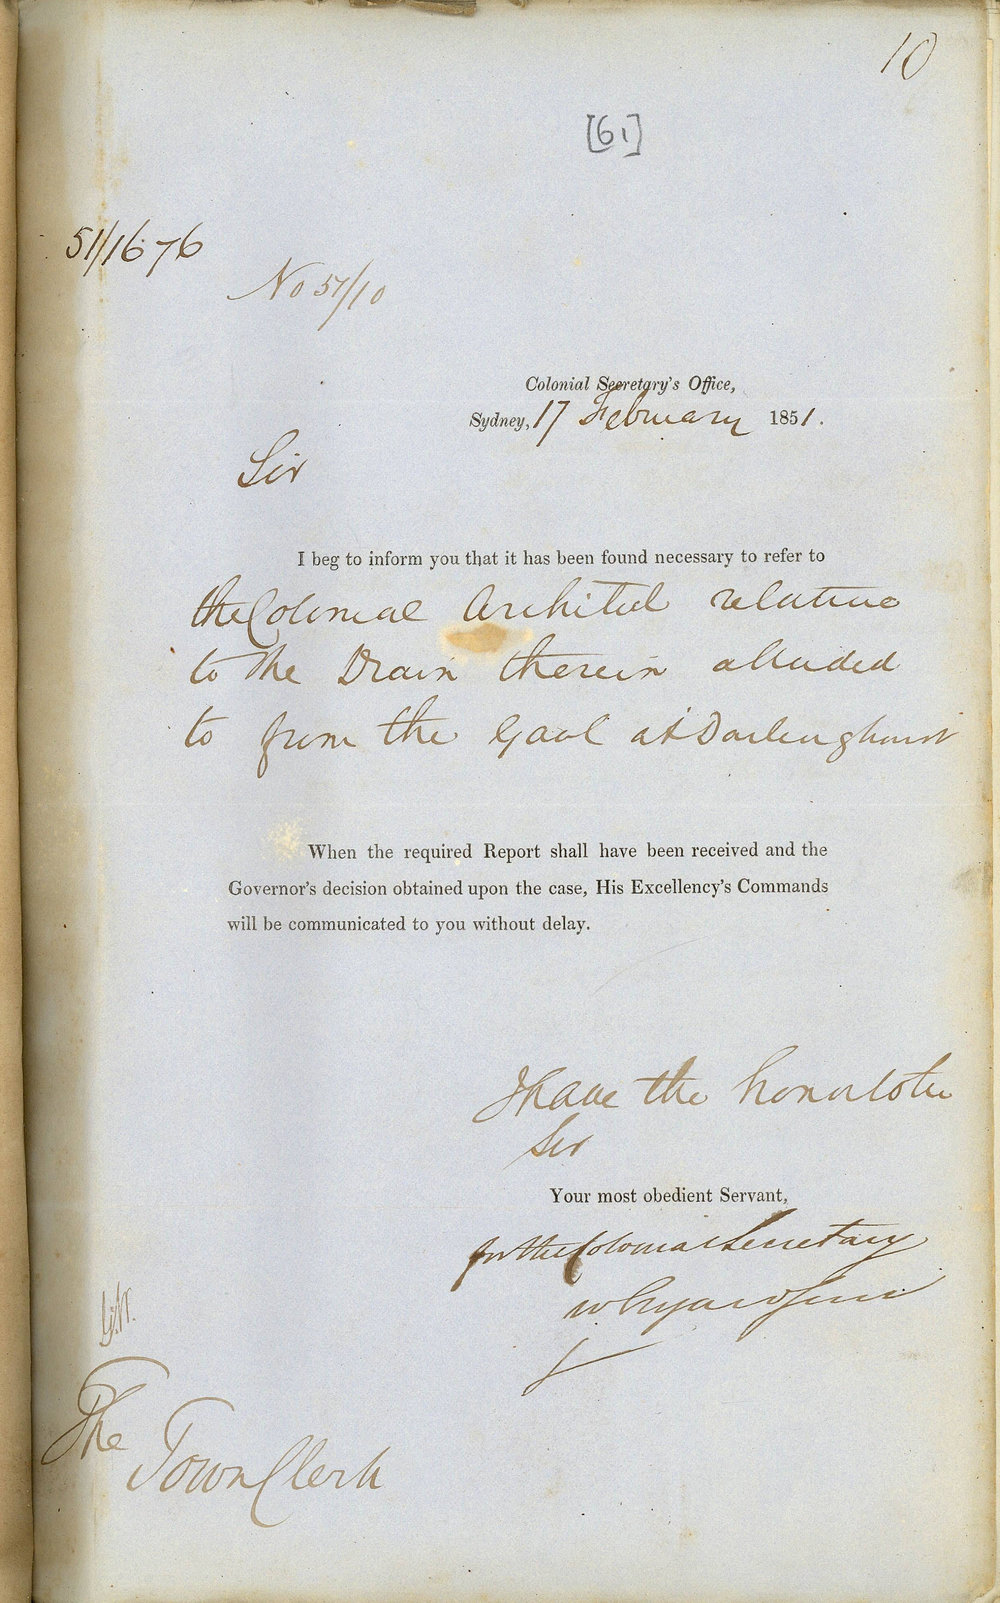 10
[61]
51/1676
No 51/10
Colonial Secretary's Office,
Sydney, 17 February 1851.
Sir
I beg to inform you that it has been found necessary to refer to
the Colonial Architect relative
to the Drain therein alluded
to from the Gaol at Darlinghurst
When the required Report shall have been received and the
Governor's decision obtained upon the case, His Excellency's Commands
will be communicated to you without delay.
I have the honor to be
Sir
Your most obedient Servant,
for the Colonial Secretary
The
Town Clerk